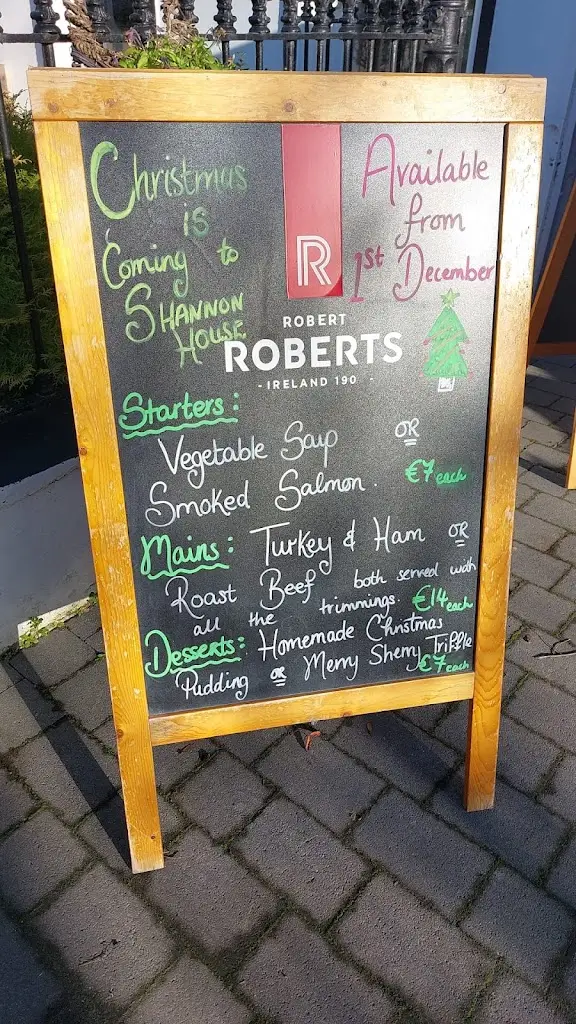 Christmas
is
Coming to
SHANNON
HOUSE
Available
from
1st December
R
ROBERT
ROBERTS
- IRELAND 190 -
Starters:
Vegetable Soup OR
Smoked Salmon. €7 each
Mains: Turkey & Ham OR
Roast Beef both served with
all the trimmings. €14 each
Desserts: Homemade Christmas
Pudding OR Merry Sherry Triffle
€7 each